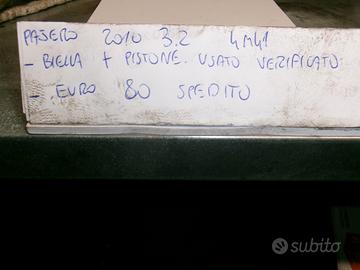 PAJERO 2010 3.2 4M41
- BIELLA + PISTONE USATO VERIFICATO
- EURO 80 SPEDITO
subito